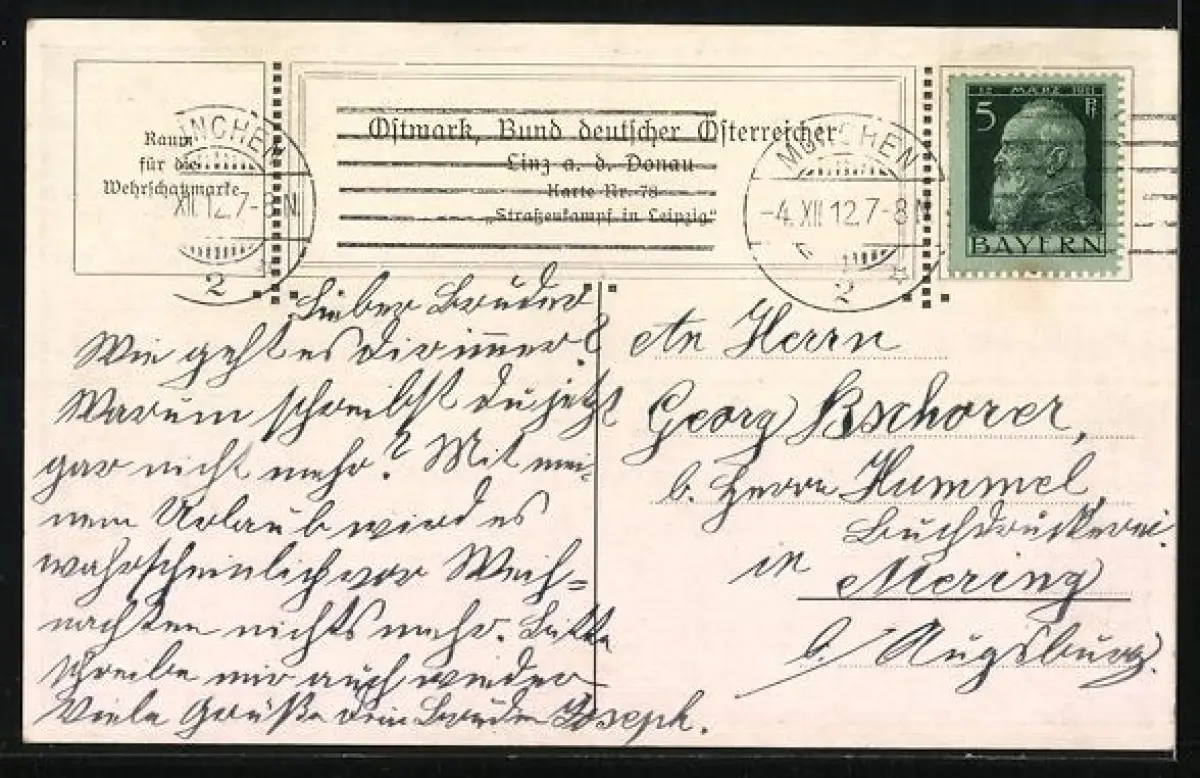 Raum
für die
Wehrschatzmarke
Ostmark, Bund deutscher Österreicher
Linz a. d. Donau
Karte Nr. 78
„Straßenkampf in Leipzig“
MÜNCHEN
XII.12.7-8 N.
2
MÜNCHEN
-4.XII.12.7-8 N.
2
12 MÄRZ 1911
5 Pf
BAYERN
Lieber Bruder
Wie geht es dir immer?
Warum schreibst du jetzt
gar nicht mehr? Mit mei-
nem Urlaub wird es
wahrscheinlich vor Weih=
nachten nichts mehr. Bitte
schreibe mir auch wieder
Viele Grüße dein Bruder Joseph.
An Herrn
Georg Bschorer,
b. Herrn Hummel,
Buchdruckerei.
in Mering
b/ Augsburg.